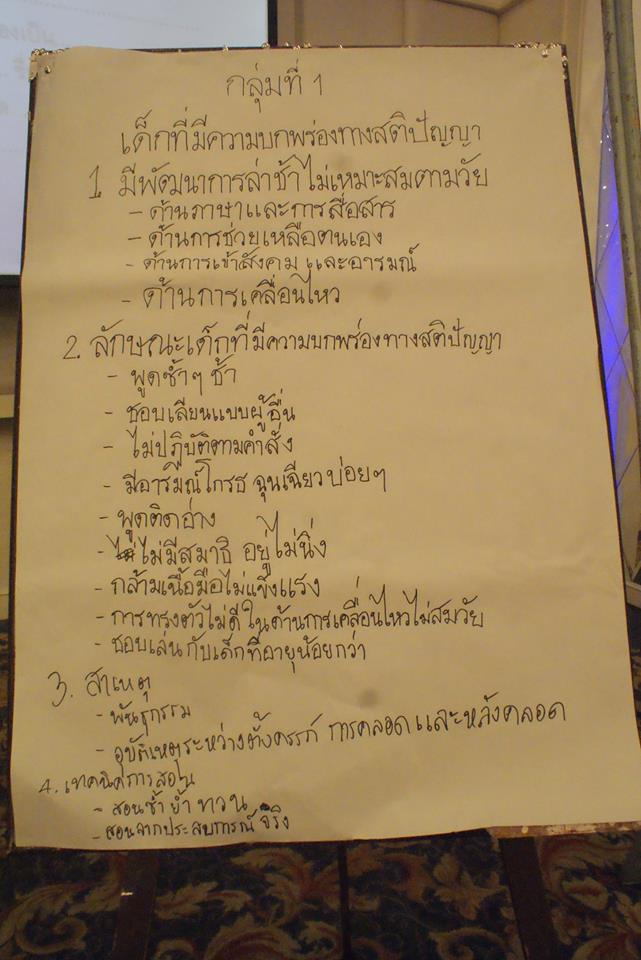 กลุ่มที่ 1
เด็กที่มีความบกพร่องทางสติปัญญา
1 มีพัฒนาการล่าช้าไม่เหมาะสมตามวัย
- ด้านภาษาและการสื่อสาร
- ด้านการช่วยเหลือตนเอง
- ด้านการเข้าสังคม และอารมณ์
- ด้านการเคลื่อนไหว
2. ลักษณะเด็กที่มีความบกพร่องทางสติปัญญา
- พูดซ้ำๆ ช้า
- ชอบเลียนแบบผู้อื่น
- ไม่ปฏิบัติตามคำสั่ง
- มีอารมณ์โกรธ ฉุนเฉียวบ่อยๆ
- พูดติดอ่าง
- ไม่มีสมาธิ อยู่ไม่นิ่ง
- กล้ามเนื้อมือไม่แข็งแรง
- การทรงตัวไม่ดีในด้านการเคลื่อนไหวไม่สมวัย
- ชอบเล่นกับเด็กที่อายุน้อยกว่า
3. สาเหตุ
- พันธุกรรม
- อุบัติเหตุระหว่างตั้งครรภ์ การคลอดและหลังคลอด
4. เทคนิคการสอน
- สอนซ้ำ ย้ำ ทวน
- สอนจากประสบการณ์จริง